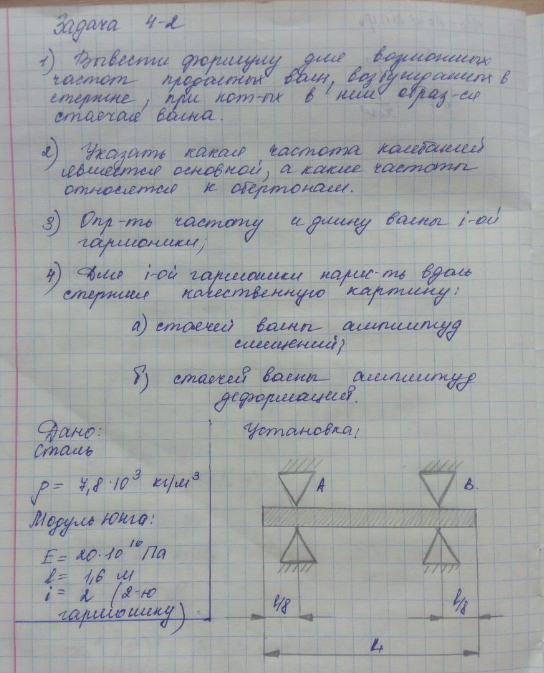 Задача 4-2
1) Вывести формулу для возможных
частот продольных волн, возбуждаемых в
стержне, при кот-ых в нём образ-ся
стоячая волна.
2) Указать какая частота колебаний
является основной, а какие частоты
относятся к обертонам.
3) Опр-ть частоту и длину волны i-ой
гармоники,
4) Для i-ой гармоники нарис-ть вдоль
стержня качественную картину:
а) стоячей волны амплитуд
смещений;
б) стоячей волны амплитуд
деформаций.
Дано:
сталь
ρ = 7,8·10³ кг/м³
Модуль Юнга:
E = 20·10¹⁰ Па
l = 1,6 м
i = 2 (2-ю
гармонику)
Установка:
A
B.
l/8
l/8
L